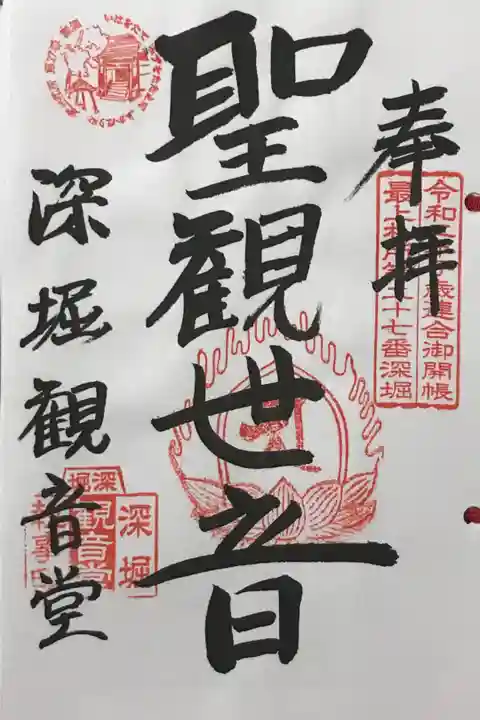 奉拝
令和 子歳連合御開帳
最上札所第二十七番深堀
聖観世音
深堀観音堂
深堀
深堀
観音堂